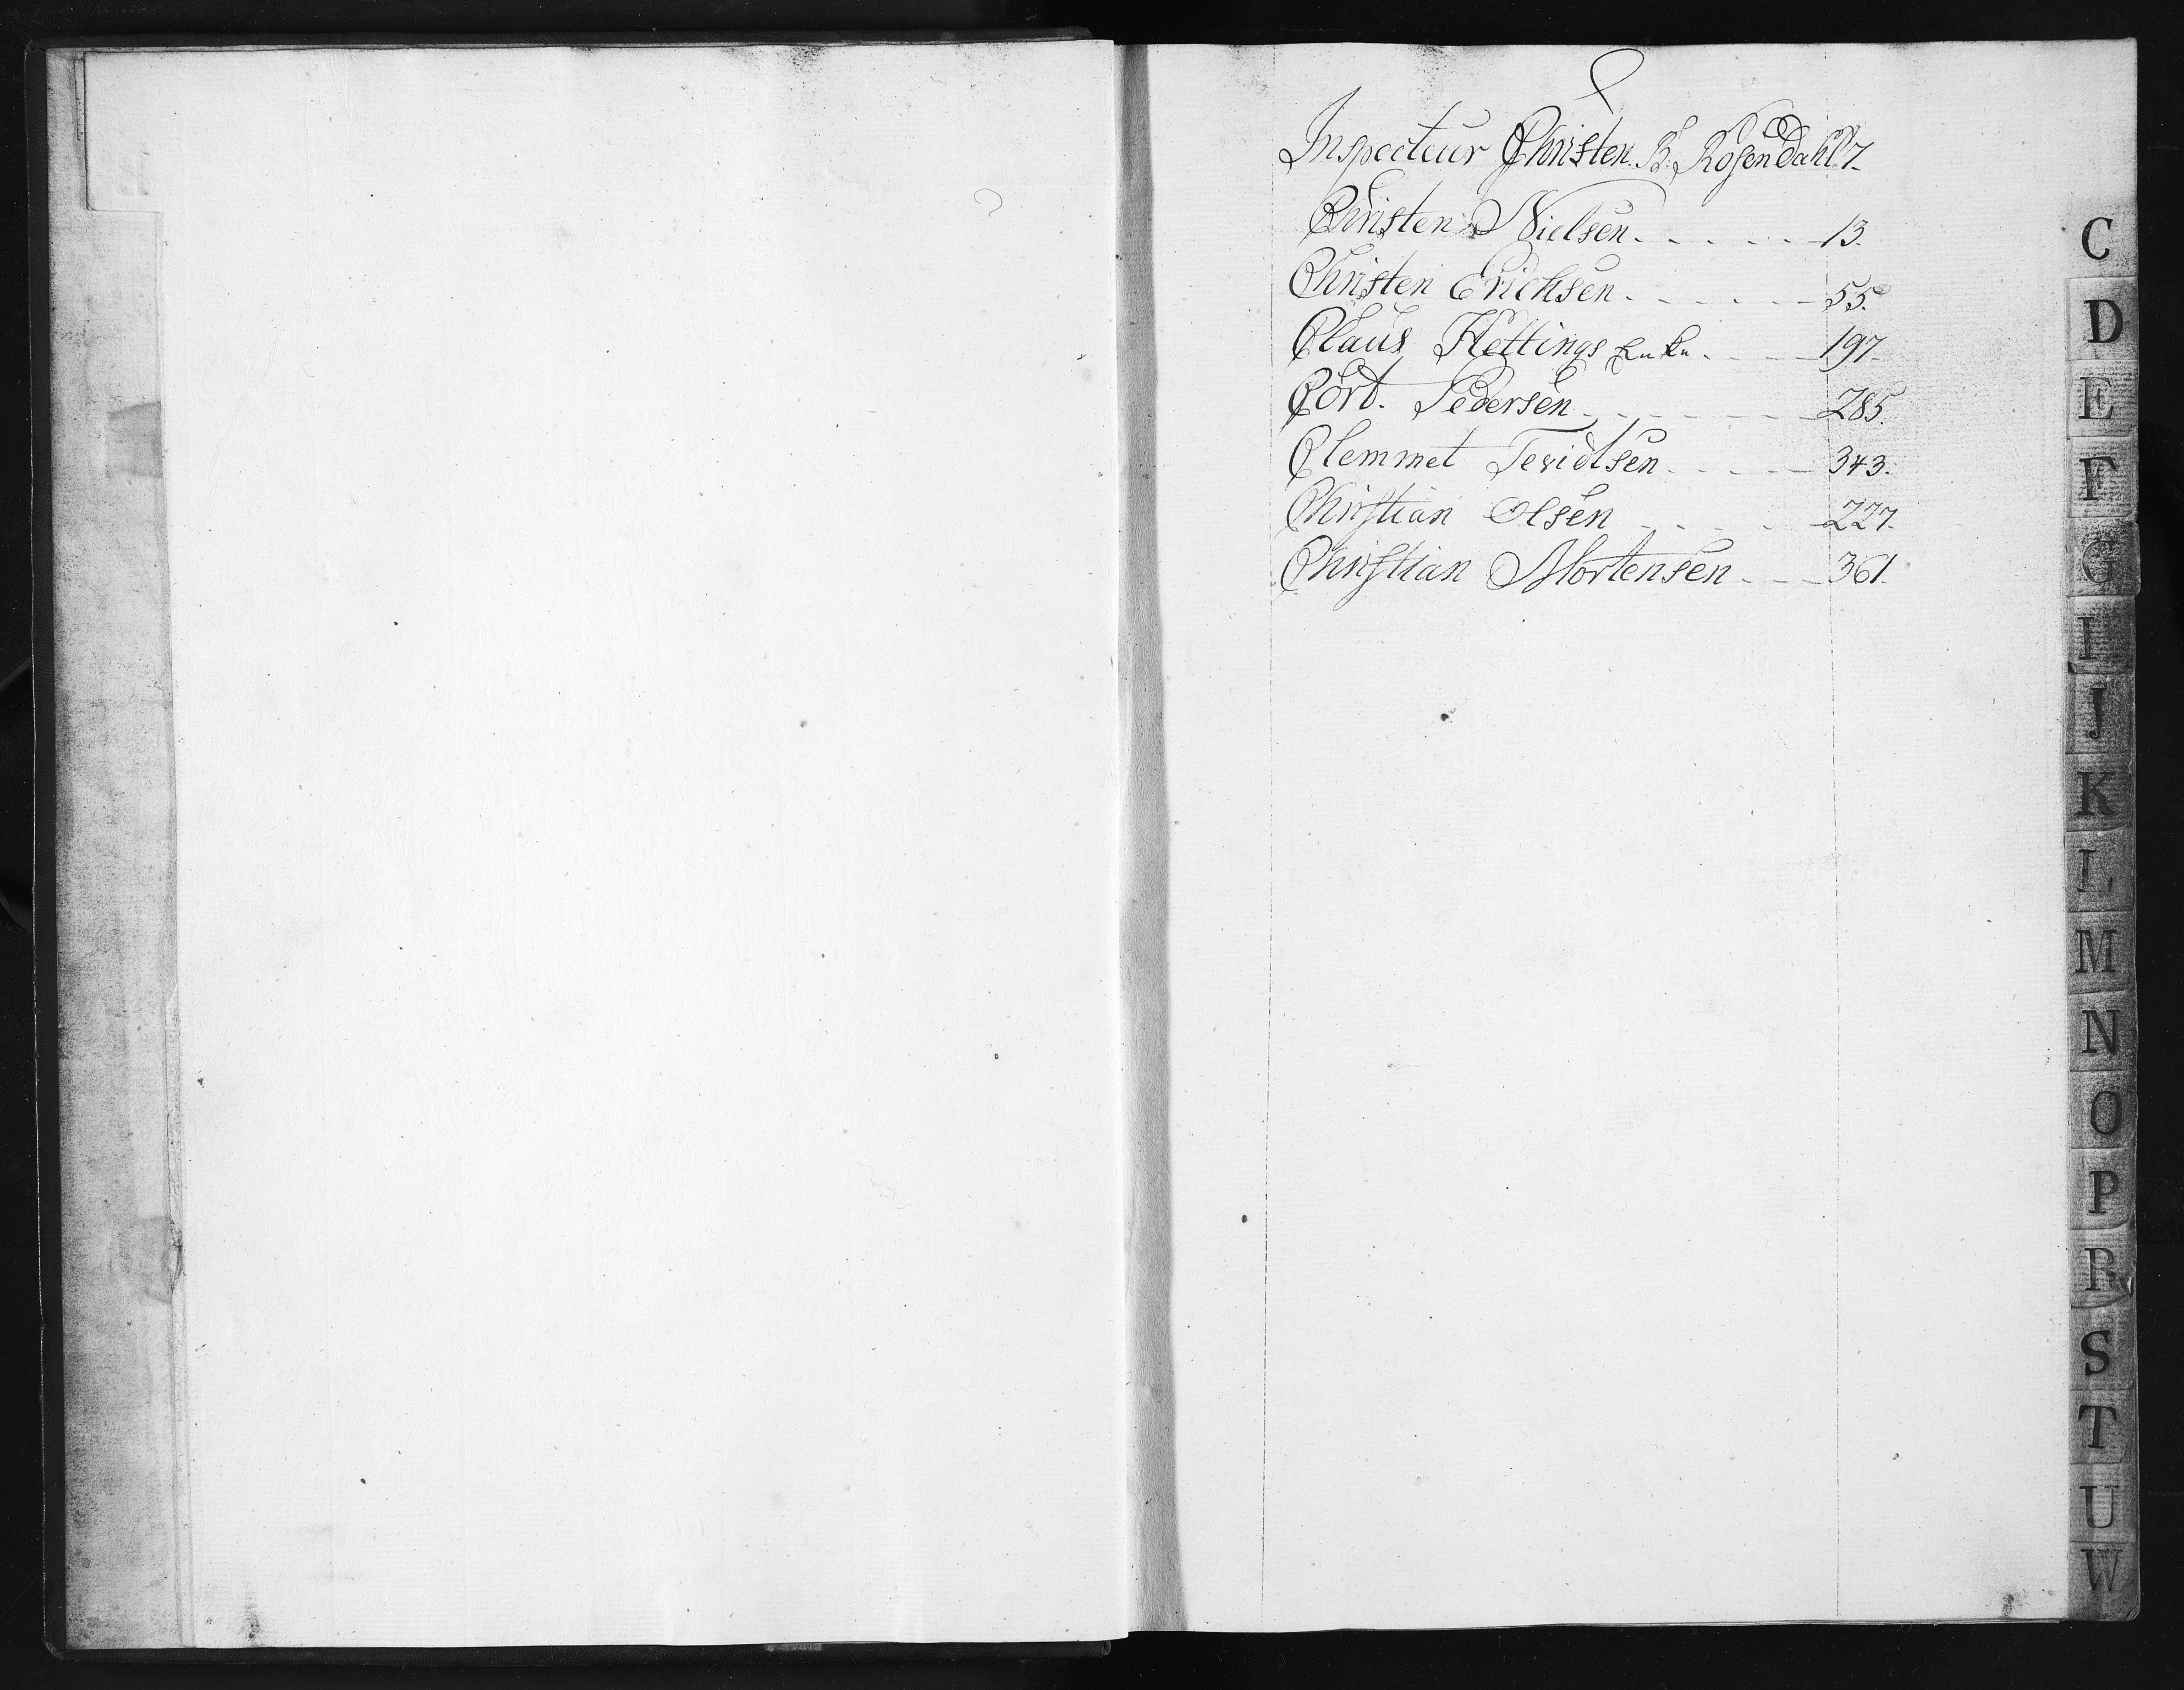 C
Inspecteur Christen B: Rosendahl 7.
Christen Nielsen 13.
Christen Erichsen 55.
Claus Hettings Enke 197.
Cort Pedersen 285.
Clemmet 343.
Christian Olsen 227.
Christian Mortensen 361.
C
D
E
F
G
I
J
K
L
M
N
O
P
R
S
T
U
W